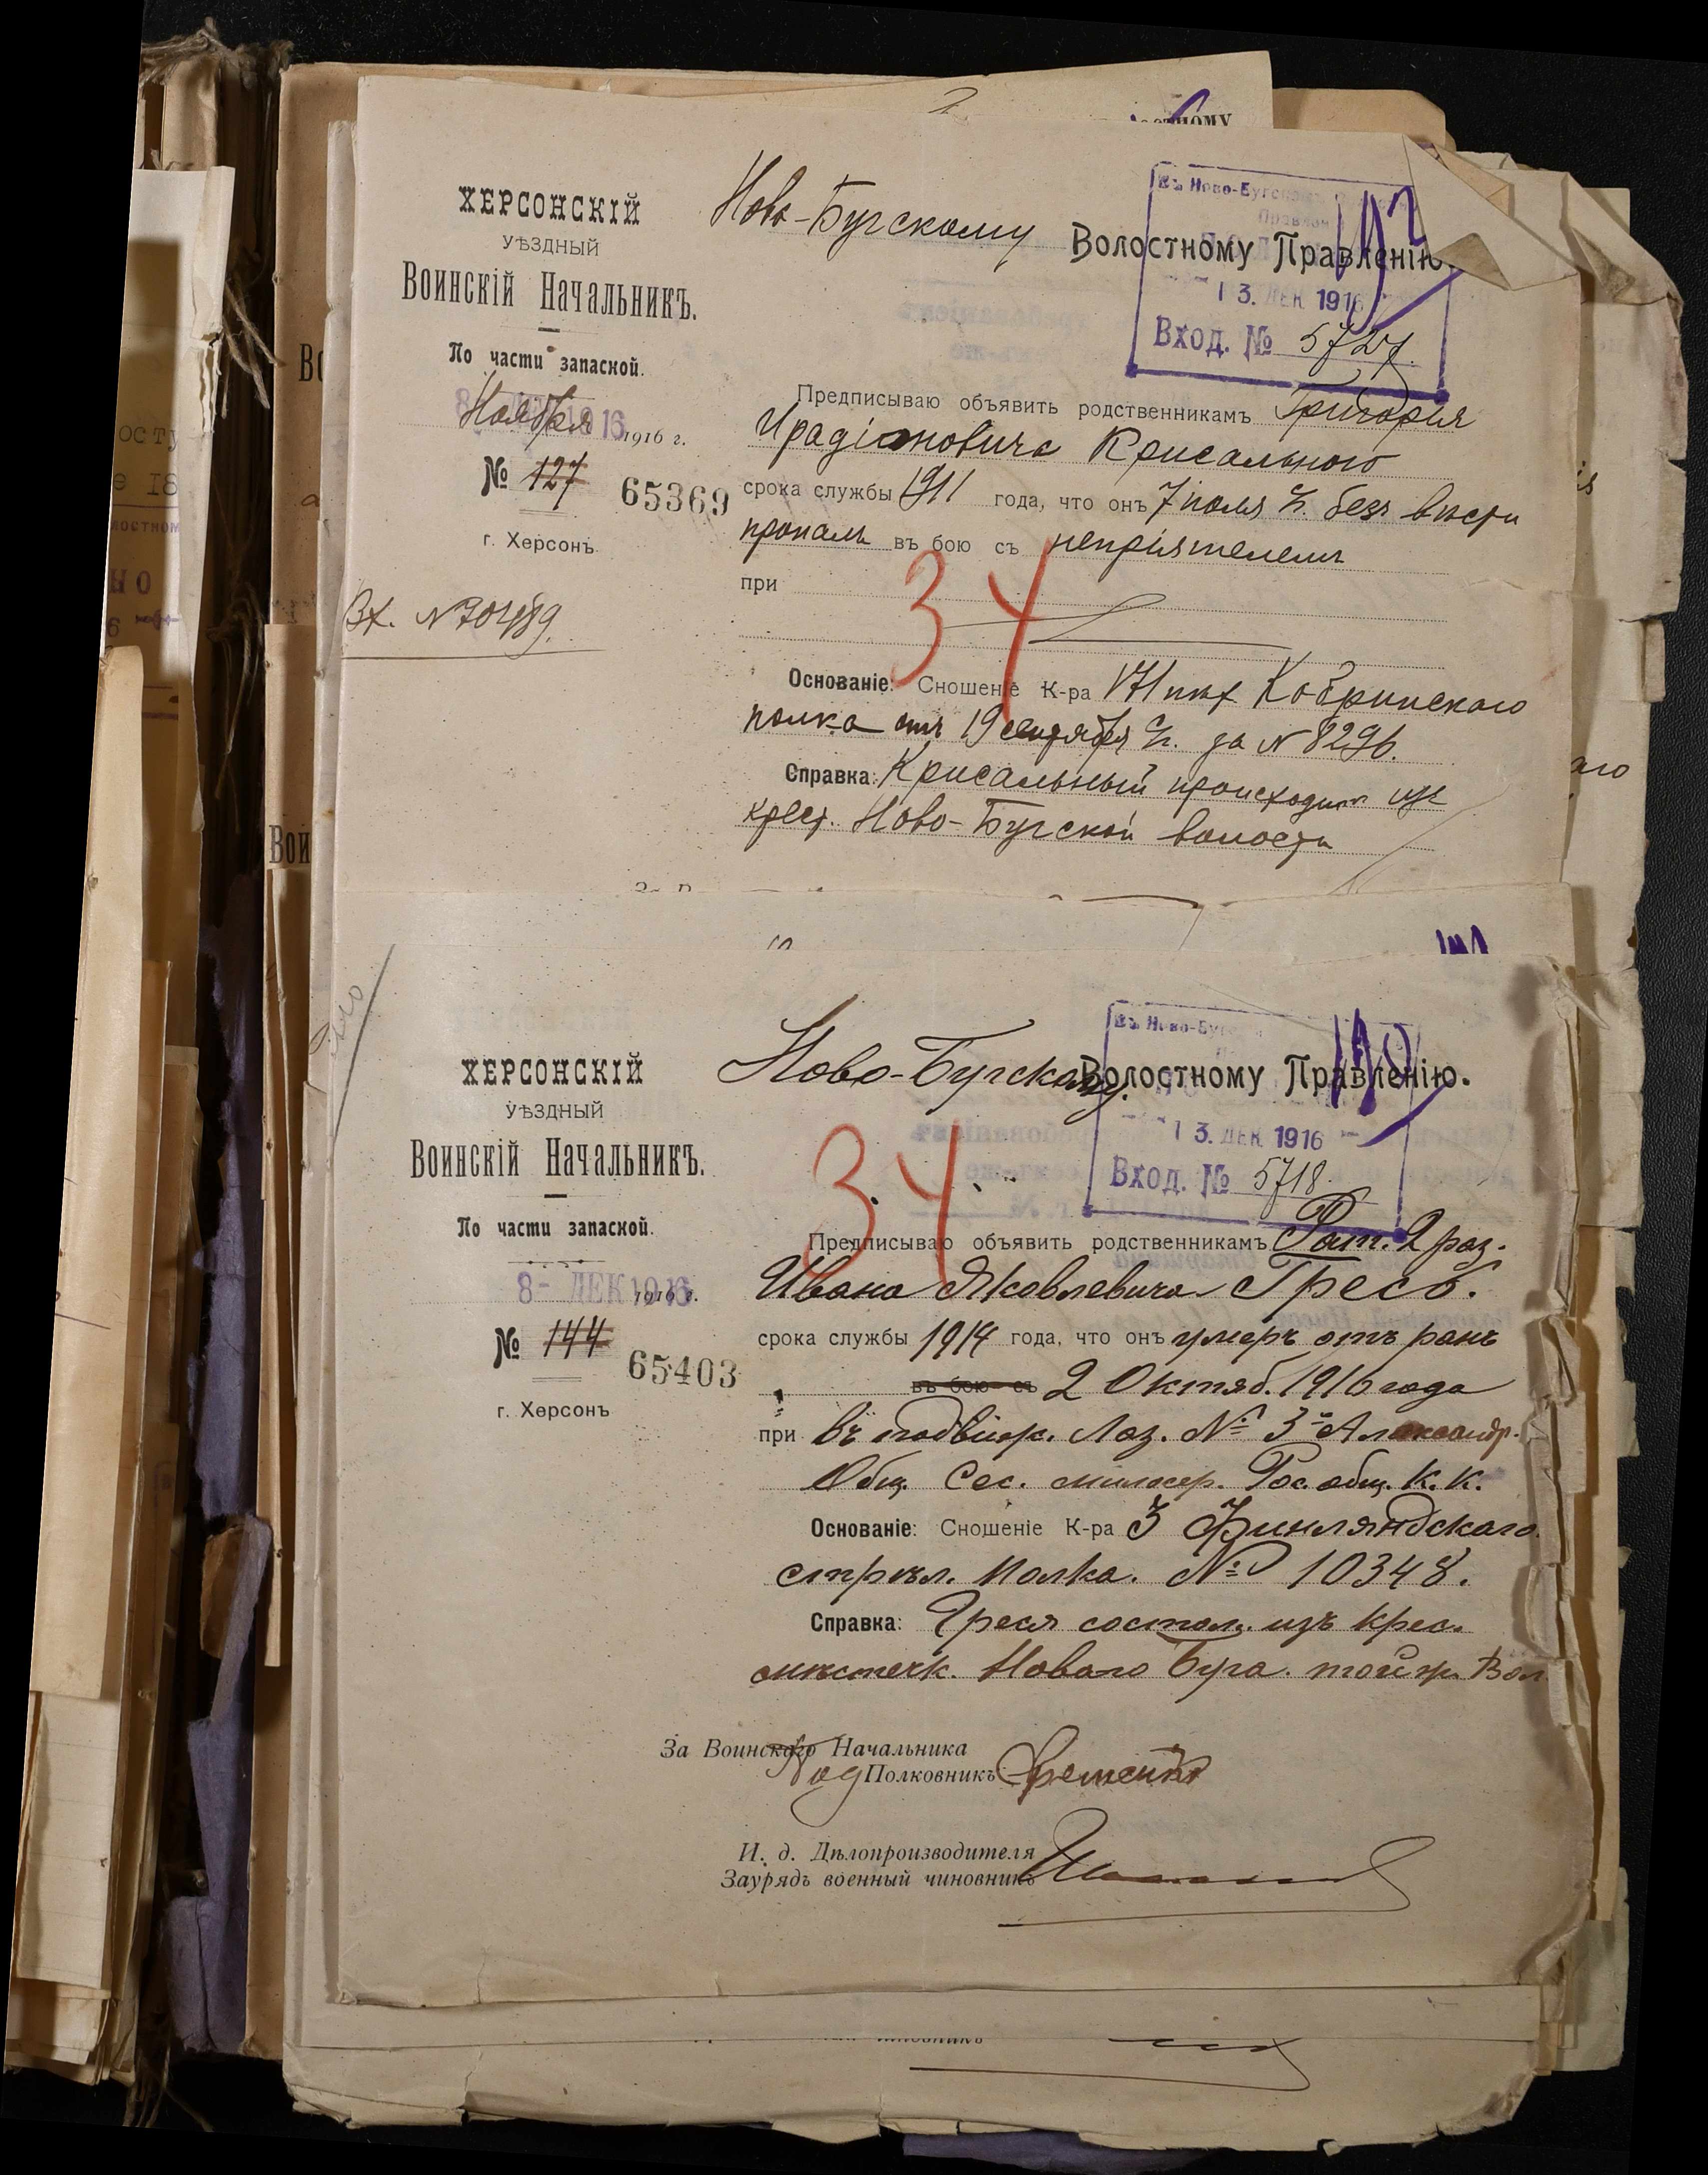 ХЕРСОНСКІЙ
УѢЗДНЫЙ
ВОИНСКІЙ НАЧАЛЬНИКЪ.
По части запасной.
Ноября 1916 г.
№ 127 65369
г. Херсонъ
Вх. №
Ново-Бугскому Волостному Правленію.
Въ Ново-Бугском
13. ДЕК 1916
Вход. № 5727.
Предписываю объявить родственникамъ Григорія
Ирадіоновича Крисального
срока службы 1911 года, что онъ 7 іюля с/г. безъ вѣсти
пропалъ въ бою съ непріятелемъ
при
34
Основаніе: Сношеніе К-ра 171 пѣх Кобринскаго
полка отъ 19 сентября с/г. за № 8296.
Справка: Крисальный происходитъ изъ
крест. Ново-Бугской волости
ХЕРСОНСКІЙ
УѢЗДНЫЙ
ВОИНСКІЙ НАЧАЛЬНИКЪ.
По части запасной.
8- ДЕК 1916 1916 г.
№ 144 65403
г. Херсонъ
Ново-Бугскому. Волостному Правленію.
Въ Ново-Буг
13. ДЕК 1916
Вход. № 5718.
34
Предписываю объявить родственникамъ Рат. 2 раз.
Ивана Яковлевича Гресь.
срока службы 1914 года, что онъ умеръ отъ ранъ
въ бою съ 2 Октяб. 1916 года
при въ подвиж. Лаз. № 3й Александр.
Общ. Сес. милосер. Рос. общ. К. К.
Основаніе: Сношеніе К-ра 3 Финляндскаго
стрѣл. Полка. № 10348.
Справка: Гресь состол. изъ крес.
мѣстечк. Новаго Буга. той ж. Вол.
За Воинского Начальника
Под Полковникъ
И. д. Дѣлопроизводителя
Заурядъ военный чиновникъ